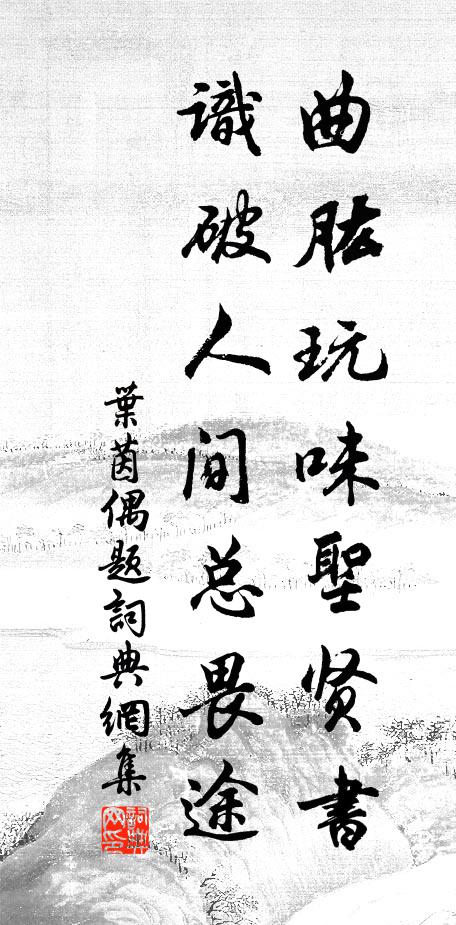 曲肱玩味聖贤書
識破人间总畏途
葉茵偶题詞典網集